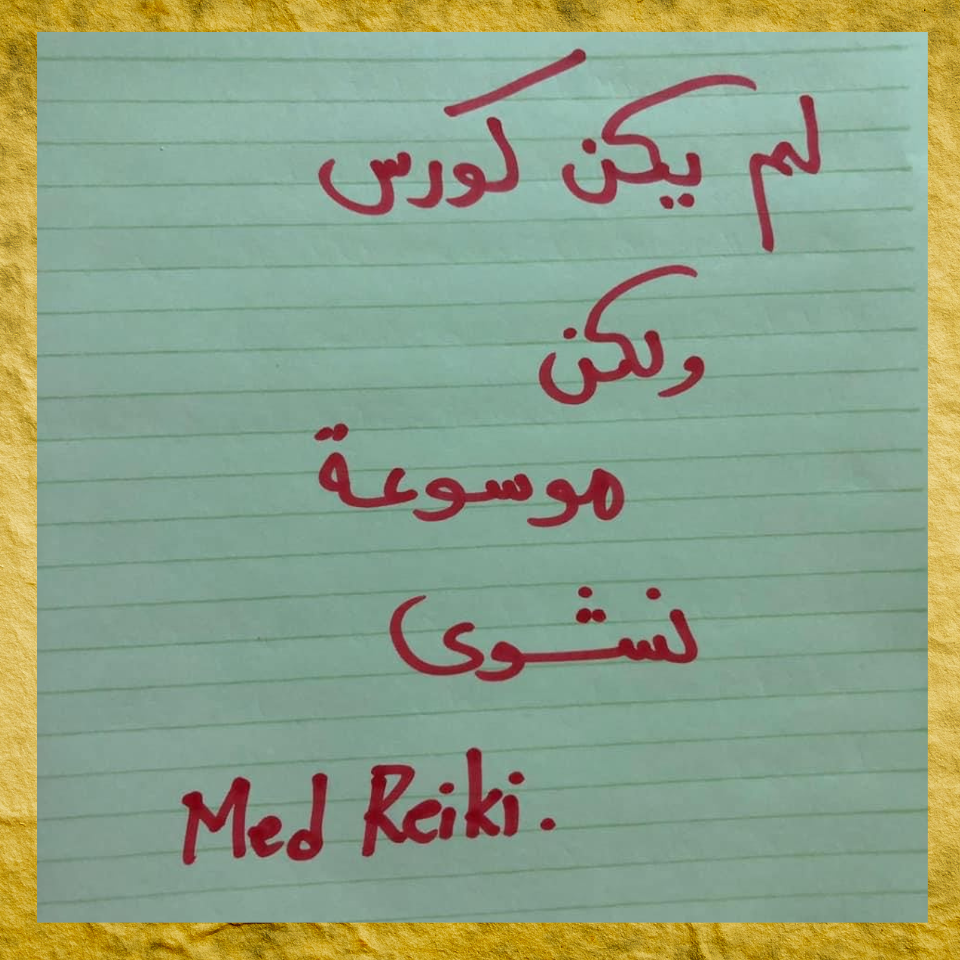 لم يكن كورس
ولكن
موسوعة
نشوى
Med Reiki.